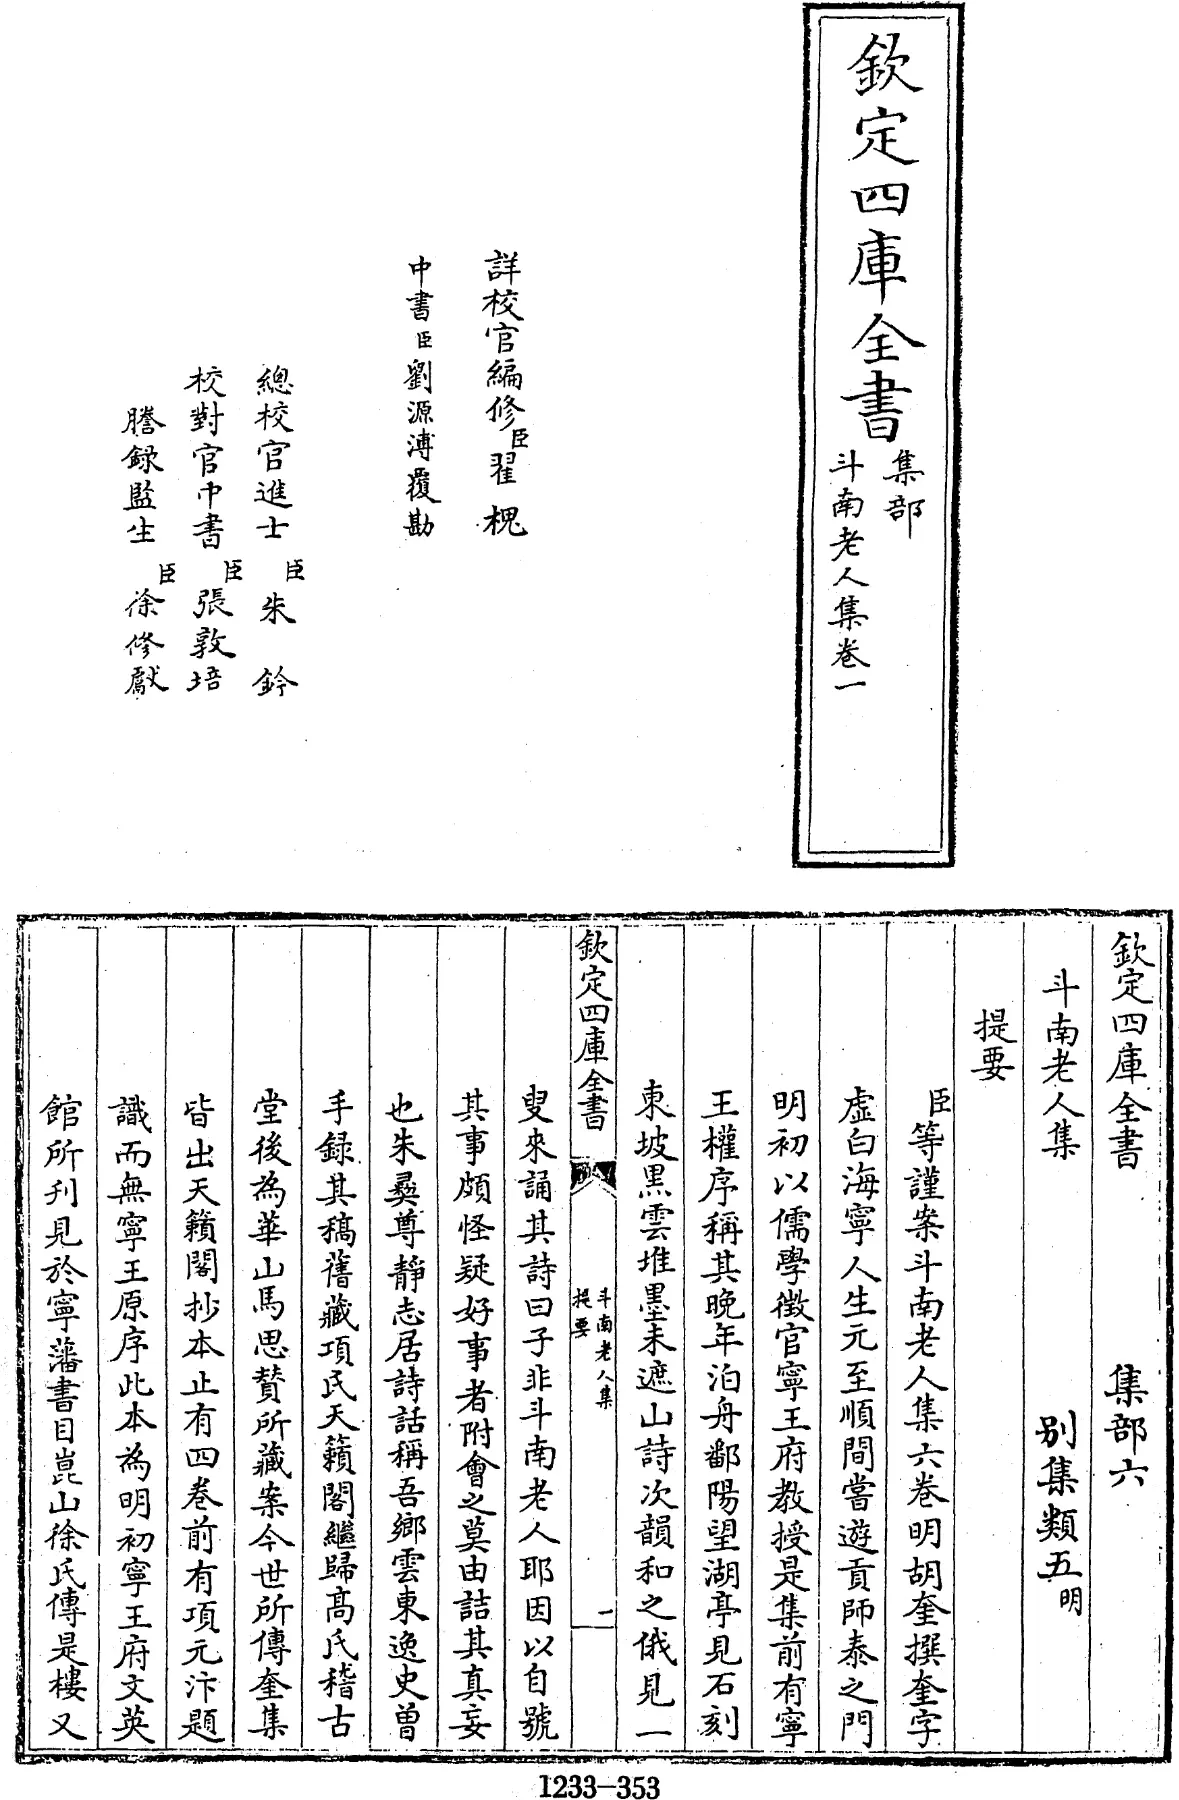 欽定四庫全書
集部
斗南老人集卷一
詳校官編修臣翟槐
中書臣劉源溥覆勘
總校官進士臣朱鈐
校對官中書臣張敦培
謄錄監生臣徐修獻
欽定四庫全書 集部六
斗南老人集 別集類五明
提要
臣等謹案斗南老人集六卷明胡奎撰奎字
虛白海寧人生元至順間嘗遊貢師泰之門
明初以儒學徵官寧王府教授是集前有寧
王權序稱其晚年泊舟鄱陽望湖亭見石刻
東坡黑雲堆墨未遮山詩次韻和之俄見一
欽定四庫全書
斗南老人集
提要
一
叟來誦其詩曰子非斗南老人耶因以自號
其事頗怪疑好事者附會之莫由詰其真妄
也朱彞尊靜志居詩話稱吾鄉雲東逸史曾
手録其稿舊藏項氏天籟閣繼歸高氏稽古
堂後為華山馬思賛所藏案今世所傳奎集
皆出天籟閣抄本止有四卷前有項元汴題
識而無寧王原序此本為明初寧王府文英
館所刋見於寧藩書目崑山徐氏傳是樓又
1233-353